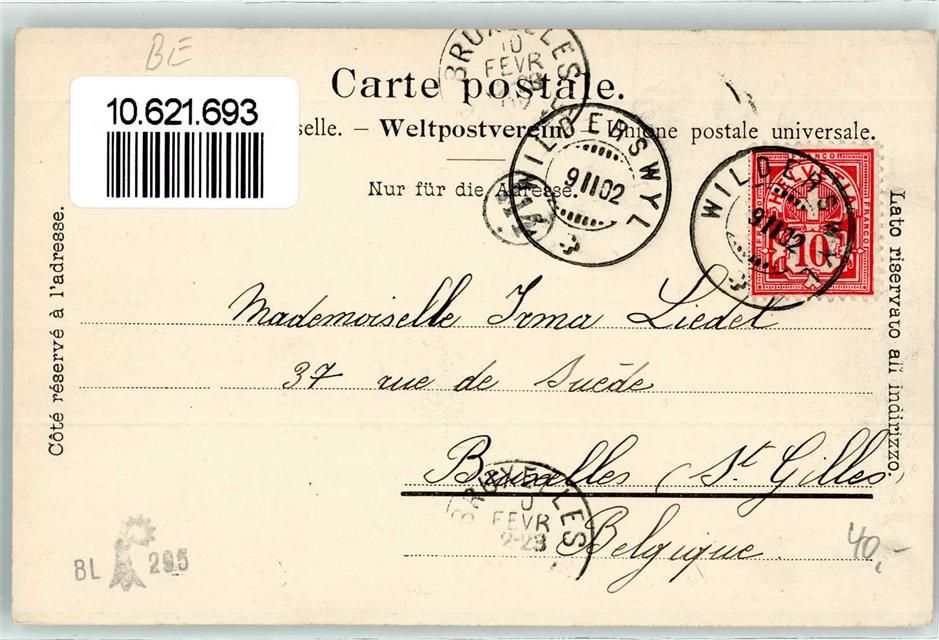 BE
BRUXELLES
10
FEVR
Carte postale.
10.621.693
selle. – Weltpostverein. – Unione postale universale.
WILDERSWYL
9 II 02
Nur für die Adresse.
WILDERSWYL
9 II 02
HELVETIA
FRANCO
10
Côté réservé à l'adresse.
Lato riservato all indirizzo.
Mademoiselle Irma Liedel
37 rue de Suède
Bruxelles (St Gilles)
Belgique.
BRUXELLES
FEVR
40,-
BL 295